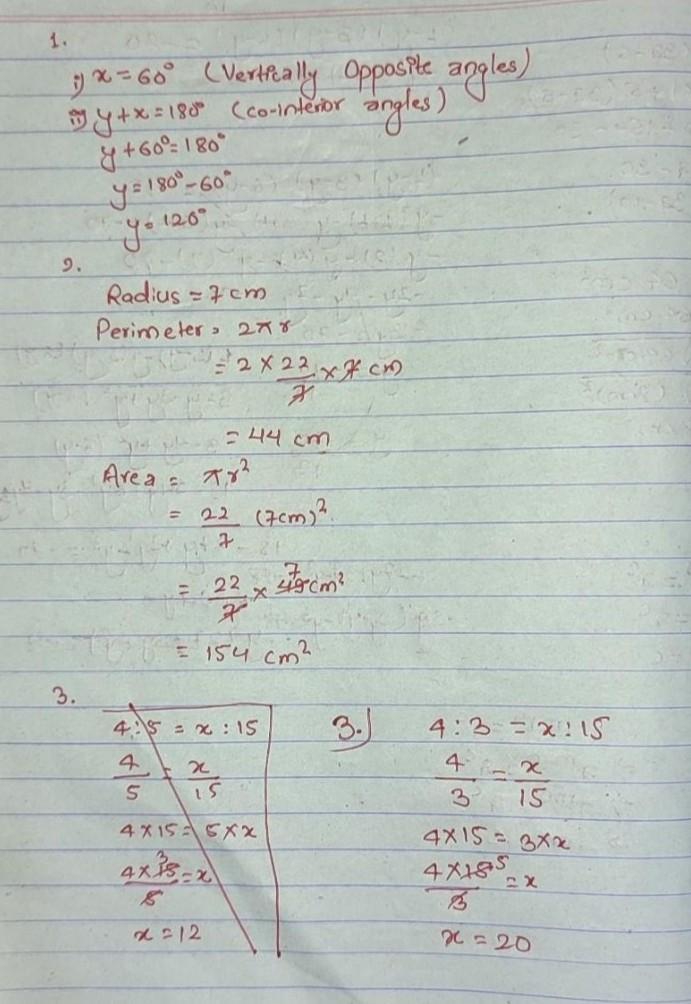 1.
i) x = 60° (Vertically Opposite angles)
ii) y + x = 180° (co-interior angles)
y + 60° = 180°
y = 180° - 60°
y = 120°
2.
Radius = 7 cm
Perimeter = 2πr
= 2 × 22/7 × 7 cm
= 44 cm
Area = πr²
= 22/7 (7cm)²
= 22/7 × 49 7 cm²
= 154 cm²
3.
4 : 5 = x : 15
4/5 = x/15
4 × 15 = 5 × x
4 × 15 3/5 = x
x = 12
3.)
4 : 3 = x : 15
4/3 = x/15
4 × 15 = 3 × x
4 × 15 5/3 = x
x = 20